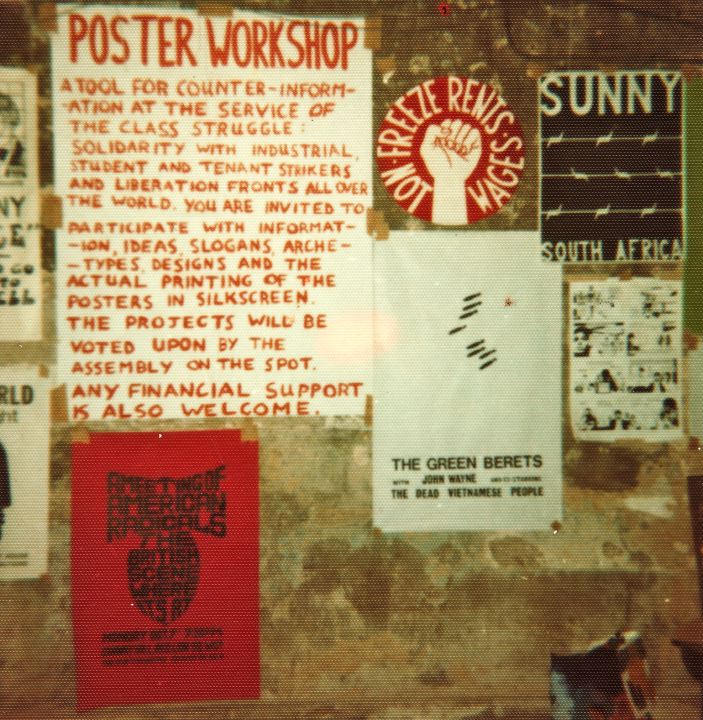 POSTER WORKSHOP
A TOOL FOR COUNTER-INFORM-
-ATION AT THE SERVICE OF
THE CLASS STRUGGLE :
SOLIDARITY WITH INDUSTRIAL,
STUDENT AND TENANT STRIKERS
AND LIBERATION FRONTS ALL OVER
THE WORLD. YOU ARE INVITED TO
PARTICIPATE WITH INFORMAT-
-ION, IDEAS, SLOGANS, ARCHE-
-TYPES, DESIGNS AND THE
ACTUAL PRINTING OF THE
POSTERS IN SILKSCREEN.
THE PROJECTS WILL BE
VOTED UPON BY THE
ASSEMBLY ON THE SPOT.
ANY FINANCIAL SUPPORT
IS ALSO WELCOME.
FREEZE RENTS·
NOT WAGES
SUNNY
SOUTH AFRICA
THE GREEN BERETS
WITH JOHN WAYNE AND CO-STARRING
THE DEAD VIETNAMESE PEOPLE
A MEETING OF
AMERICAN
RADICALS
THE
BRITISH
SCENE
WHERE
ITS AT
NY
TO
RLD